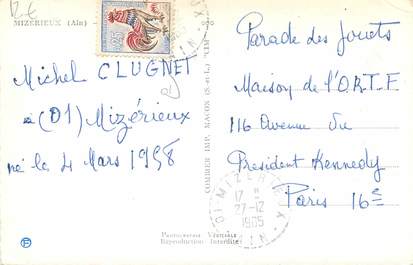 12€
MIZÉRIEUX (Ain)
25
Michel CLUGNET
à (01) Mizérieux
né le 4 Mars 1958
COMBIER IMP. MACON (S.-et-L.) "CIM"
Parade des Jouets
Maison de l'O.R.T.F
116 Avenue du
President Kennedy
Paris 16e
17 H
27-12
1965
AIN
Photographie Véritable
Reproduction Interdite